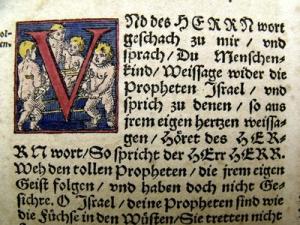 VNd des HERRN wort
geschach zu mir / vnd
sprach / Du Menschen-
kind / Weissage wider die
Propheten Israel / vnd
sprich zu denen / so aus
jrem eigen hertzen weissa-
gen / Höret des HER-
RN wort / So spricht der HErr HERR.
Weh den tollen Propheten / die jrem eigen
Geist folgen / vnd haben doch nicht Ge-
sichte. O Israel / deine Propheten sind wie
die Füchse in den Wüsten / Sie tretten nicht